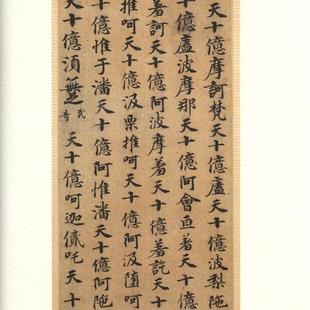 天十億摩訶梵天十億盧天十億波梨陁
天十億盧波摩那天十億阿會亘着天十億
着訶天十億阿波摩着天十億着訖天十億
推呵天十億汲栗推呵天十億阿汲随呵
天十億惟于潘天十億阿惟潘天十億阿陁
天十億須天十億呵迦儀吒天十